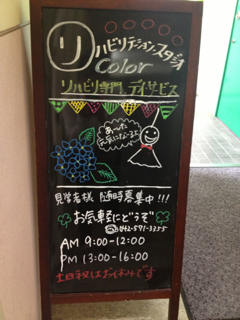 リハビリテーションスタジオ
Color
リハビリ専門 デイサービス
あ〜した
元気になーるよ
見学者様 随時募集中!!!
お気軽にどうぞ
☎042-591-3255
AM 9:00-12:00
PM 13:00-16:00
土日祝はお休みです